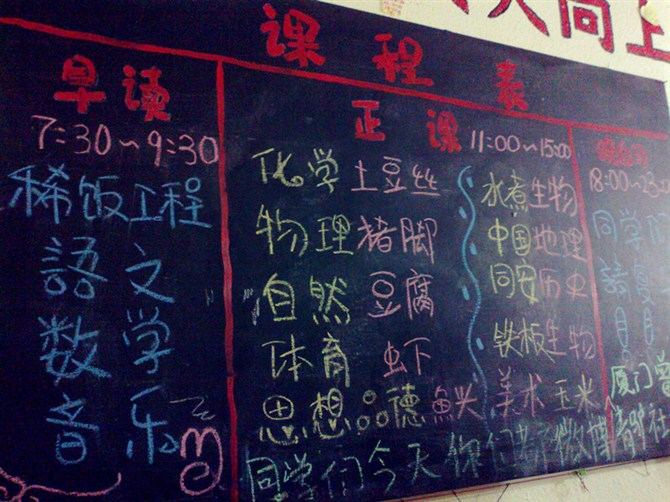 人向上
课程表
早读
7:30~9:30
稀饭工程
語文
数学
音乐
正课 11:00~15:00
化学土豆丝
物理猪脚
自然豆腐
体育虾
思想品德鱼
水煮生物
中国地理
同安历史
铁板生物
美术玉米
18:00~23
同学
請
厦门
同学们今天你们都微博